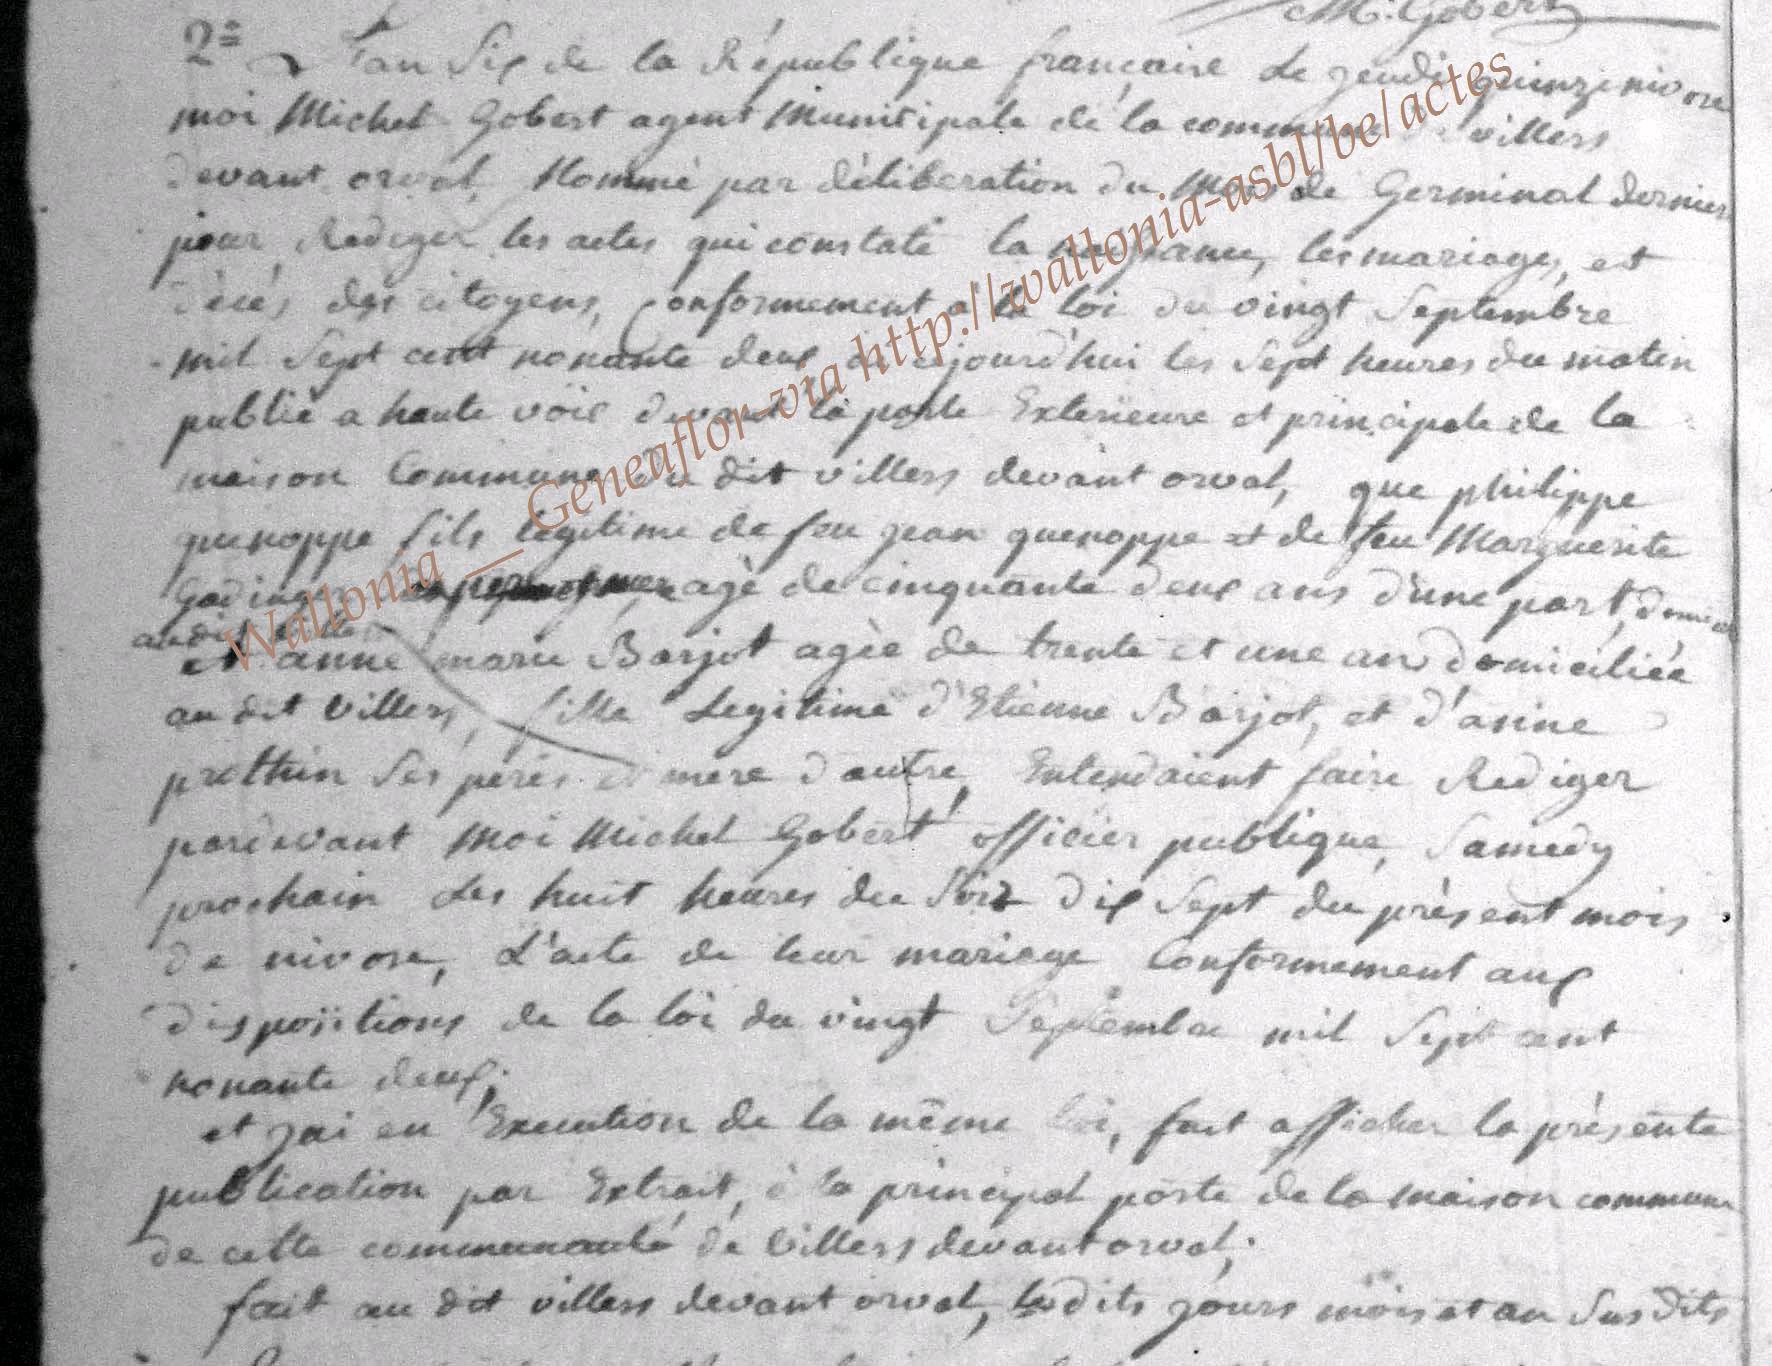 M. Gobert
2e
L'an Six de la République françaire Le jeudi quinze nivose
moi Michel Gobert agent Municipale de la commune de villers
devant orval, Nommé par déliberation du Mois de Germinal dernier
pour Rediger les actes qui constate la naissance, les mariages, et
décés des citoyens, Conformement a la loi du vingt Septembre
mil Sept cent nonante deux ai cejourd'hui les Sept heures du matin
publié a haute voix devant la porte Exterieure et principale de la
maison Commune du dit villers devant orval, que philippe
quenoppe fils légitime de feu jean quenoppe et de feu Marguerite
agé de cinquante deux ans d'une part,
audit
et anne marie Barjot agée de trente et une an domiciliée
au dit villers, fille Legitime d'Etienne Barjot, et d'anne
prothin Ses péres et mere d'autre, Entendaient faire Rediger
pardevant Moi Michel Gobert officier publique, Samedy
prochain Les huit heures du Soir dix Sept du présent mois
de nivose, L'acte de leur mariage Conformement aux
dispositions de la loi du vingt Septembre mil Sept cent
nonante deux;
et jai en Execution de la même loi, fait afficher la présente
publication par Extrait, à la principal porte de la maison commune
de cette communauté de Villers devant orval;
fait au dit villers devant orval, les dits jours mois et an Sus dits
Wallonia __ Geneaflor-via http://wallonia-asbl/be/actes